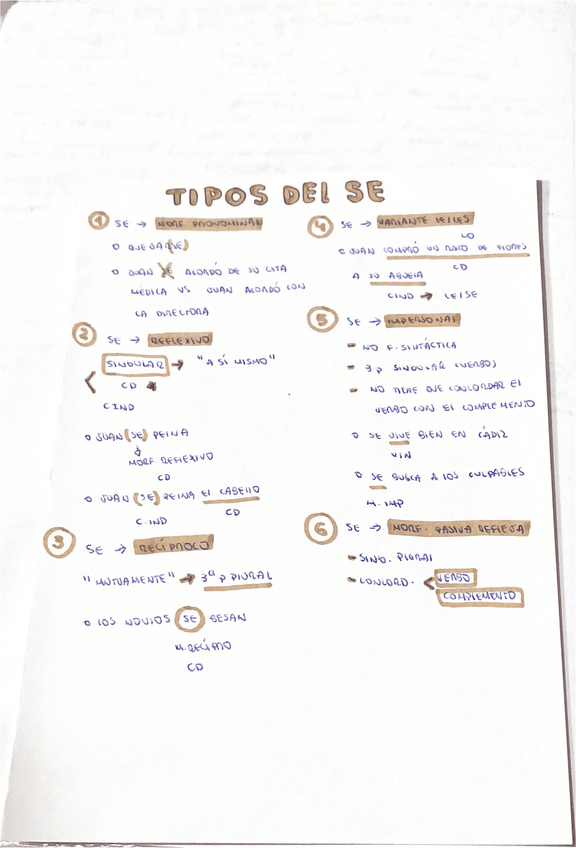 TIPOS DEL SE
1 SE → MORF. PRONOMINAL
o QUEJAR(SE)
o JUAN SE ACORDÓ DE SU CITA
MÉDICA VS JUAN ACORDÓ CON
LA DIRECTORA
2 SE → REFLEXIVO
SINGULAR → "A SÍ MISMO"
CD
CIND
o JUAN (SE) PEINA
MORF. REFLEXIVO
CD
o JUAN (SE) PEINA EL CABELLO
C.IND CD
3 SE → RECÍPROCO
"MUTUAMENTE" → 3ª P PLURAL
o LOS NOVIOS SE BESAN
CD
4 SE → VARIANTE LE/LES
LO
o JUAN COMPRÓ UN RAMO DE FLORES
CD
A SU ABUELA
CIND → LE/SE
5 SE → IMPERSONAL
- NO F. SINTÁCTICA
- 3 p SINGULAR (VERBO)
- NO TIENE QUE CONCORDAR EL
VERBO CON EL COMPLEMENTO
o SE VIVE BIEN EN CÁDIZ
o SE BUSCA A LOS CULPABLES
M. IMP
6 SE → MORF. PASIVA REFLEJA
- SING. PLURAL
- CONCORD. < VERBO
COMPLEMENTO